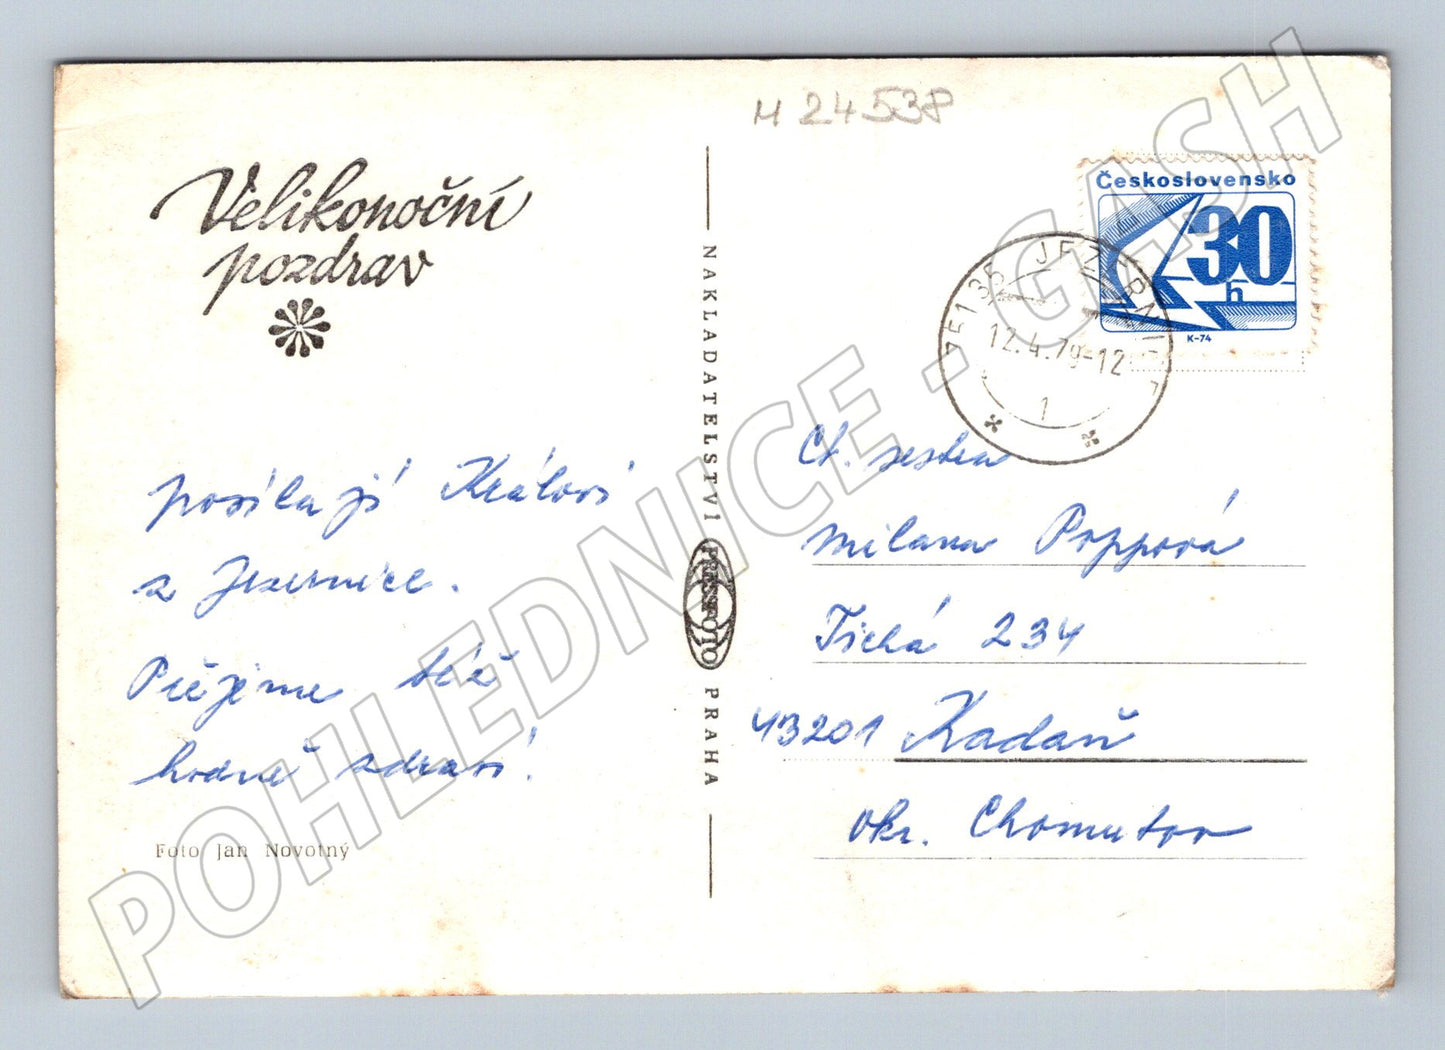 M 24538
Velikonoční
pozdrav
posílají Královi
z Jezernice.
Přejeme též
hodně zdraví!
Foto Jan Novotný
NAKLADATELSTVÍ
PRESSFOTO
PRAHA
Československo
30
h
K-74
75135 JEZERNICE
12.4.79-12
1
Ct. sestra
Milana Poppová
Tichá 234
43201 Kadaň
okr. Chomutov
POHLEDNICE - GASH